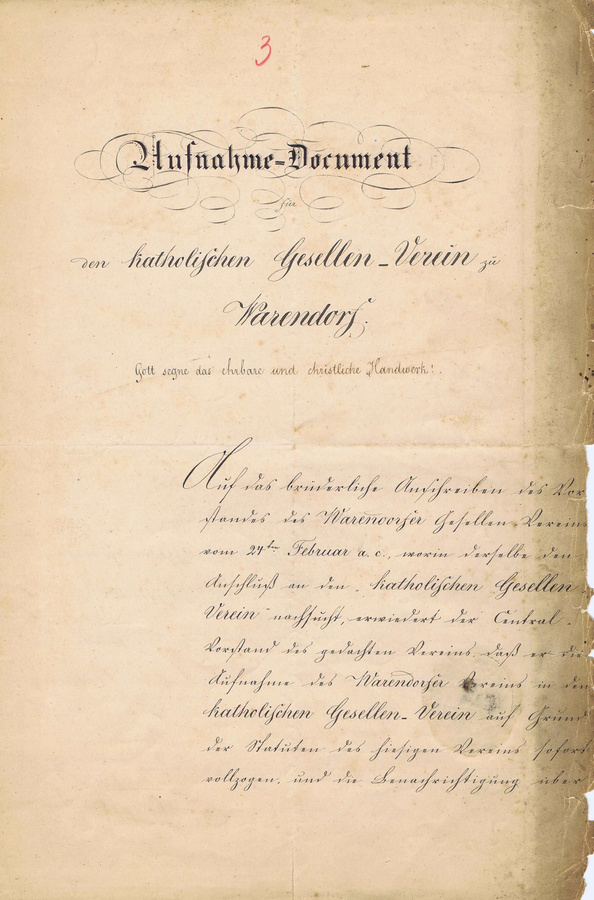 3
Aufnahme-Document
für
den katholischen Gesellen-Verein zu
Warendorf.
Gott segne das ehrbare und christliche Handwerk!
Auf das brüderliche Anschreiben des Vor
standes des Warendorfer Gesellen-Vereins
vom 24ten Februar a. c., worin derselbe den
Anschluß an den „katholischen Gesellen
Verein“ nachsucht, erwiedert der Central-
Vorstand des gedachten Vereins daß er die
Aufnahme des Warendorfer Vereins in den
katholischen Gesellen-Verein auf Grund
der Statuten des hiesigen Vereins sofort
vollzogen, und die Benachrichtigung über